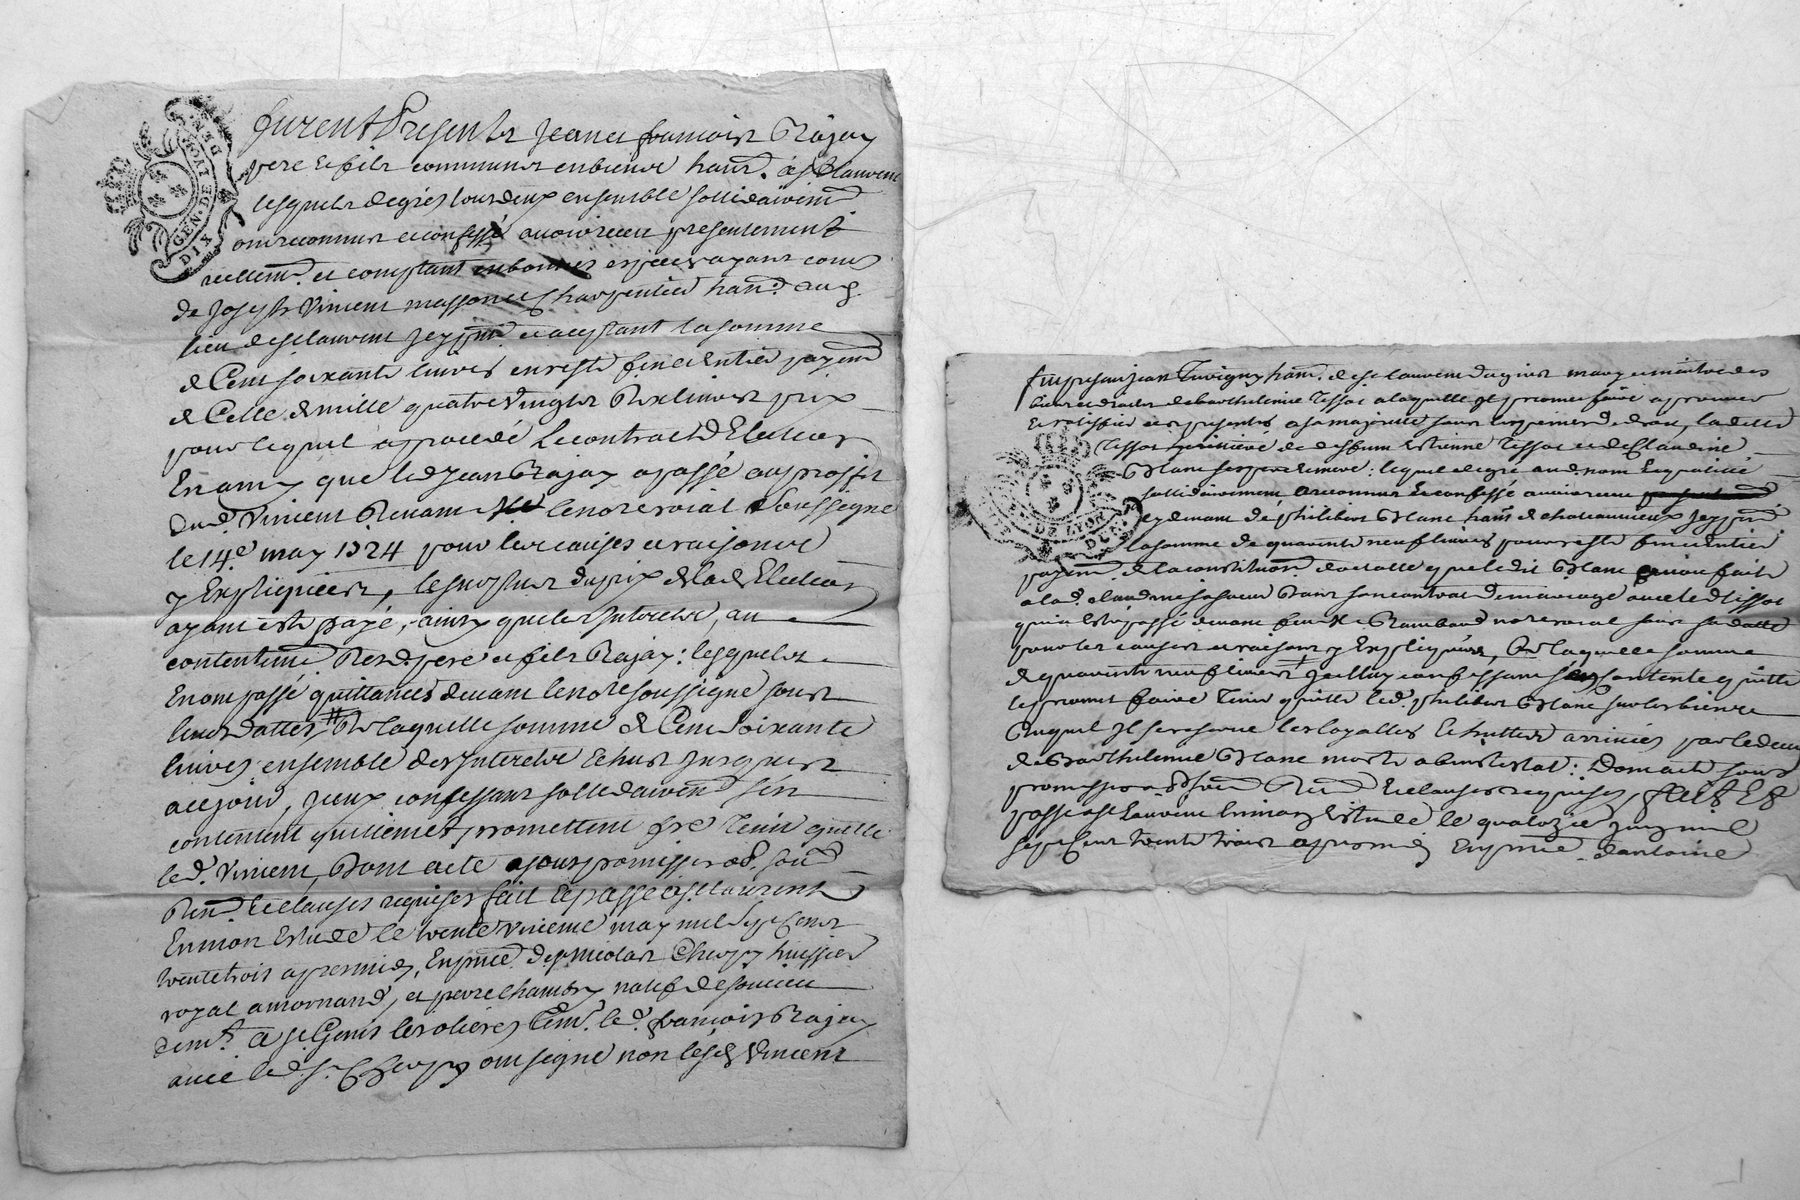 GEN. DE LYON
DIX DEN.
furent Presents Jean et francois Rajay
pere et fils communs en biens han. a St Laurent
lesquels de gres tous deux ensemble sollidairem
ont reconnus et confessé avoir receu presentement
reellem. et comptant en bonnes especes ayant cours
de Joseph Vincent masson et Charpentier han. au
lieu de St laurent Icy pnt et acceptant la somme
de Cent soixante livres en reste fin et entier payem
de Celle de mille quatre vingts livres prix
pour lequel a procedé le contract d'Election
En amy que led Jean Rajay a passé au proffit
dud. Vincent Revam le no.re roial soussigné
le 14.e may 1724 pour les causes et raisons
y Expliquées, le surplus du prix de lad. Election
ayant esté payé, ainsy que les Interets, au
contentem. Desd. pere et fils Rajay: lesquels
En ont passé quittances devant le no.re soussigné sous
leurs dattes, De laquelle somme de Cent Soixante
livres ensemble des Interets Echus Jusques
a ce jour, Iceux confessant sollidairem s'en
contentent quittent et promettent f.re tenir quitte
led. Vincent, Dont acte a sous promissions, soum.
Ren. et clauses requises fait et passé a St laurent
En mon Estude le trente unieme may mil sept Cens
trente trois apres midy, En pnce de Sr nicolas Chevry huissier
royal a mornand, et pierre Chambry natif de Soucieu
dem.t a St Genis les olieres tem. led. francois Rajay
avec led. Sr Chevry ont signé non lesd Vincent
GEN. DE LYON
fut present Jean Turigny han. de St laurent dagnis mary et maitre des
biens et droits de Barthelemie Tissot a laquelle Il promet faire approuver
et ratiffier ces presentes a sa majorité sous les peines de droit, la dette
Tissot heritiere de deffunt Estienne Tissot et de Claudine
Blanc ses pere et mere: lequel de gré aud. nom En qualité
sollidairement a reconnu et confessé avoir receu
cy devant de philibert Blanc han. de chateauvieux Icy pnt
la somme de quarante neuf livres pour reste fin et entier
payem. de la constitution dotalle que ledit Blanc avoit faite
a lad. claudine sa soeur Dans son contrat de mariage avec led. tissot
qui a esté passé devant feu Me Rambaud no.re roial sous sa datte
pour les causes et raisons y Expliquées, De laquelle somme
de quarante neuf livres Icelluy confessant s'en contente quitte
et promet faire tenir quitte led. philibert Blanc sur les biens
duquel Il se reserve les loyalles et hutteur arrivées par le deces
de Barthelemie Blanc morte abintestat: Dont acte sous
promissions Soum. Ren. et clauses requises, fait Et
passé a St laurent En mon Estude le quatorze Juin mil
sept Cent trente trois apres midy En pnce d'antoine